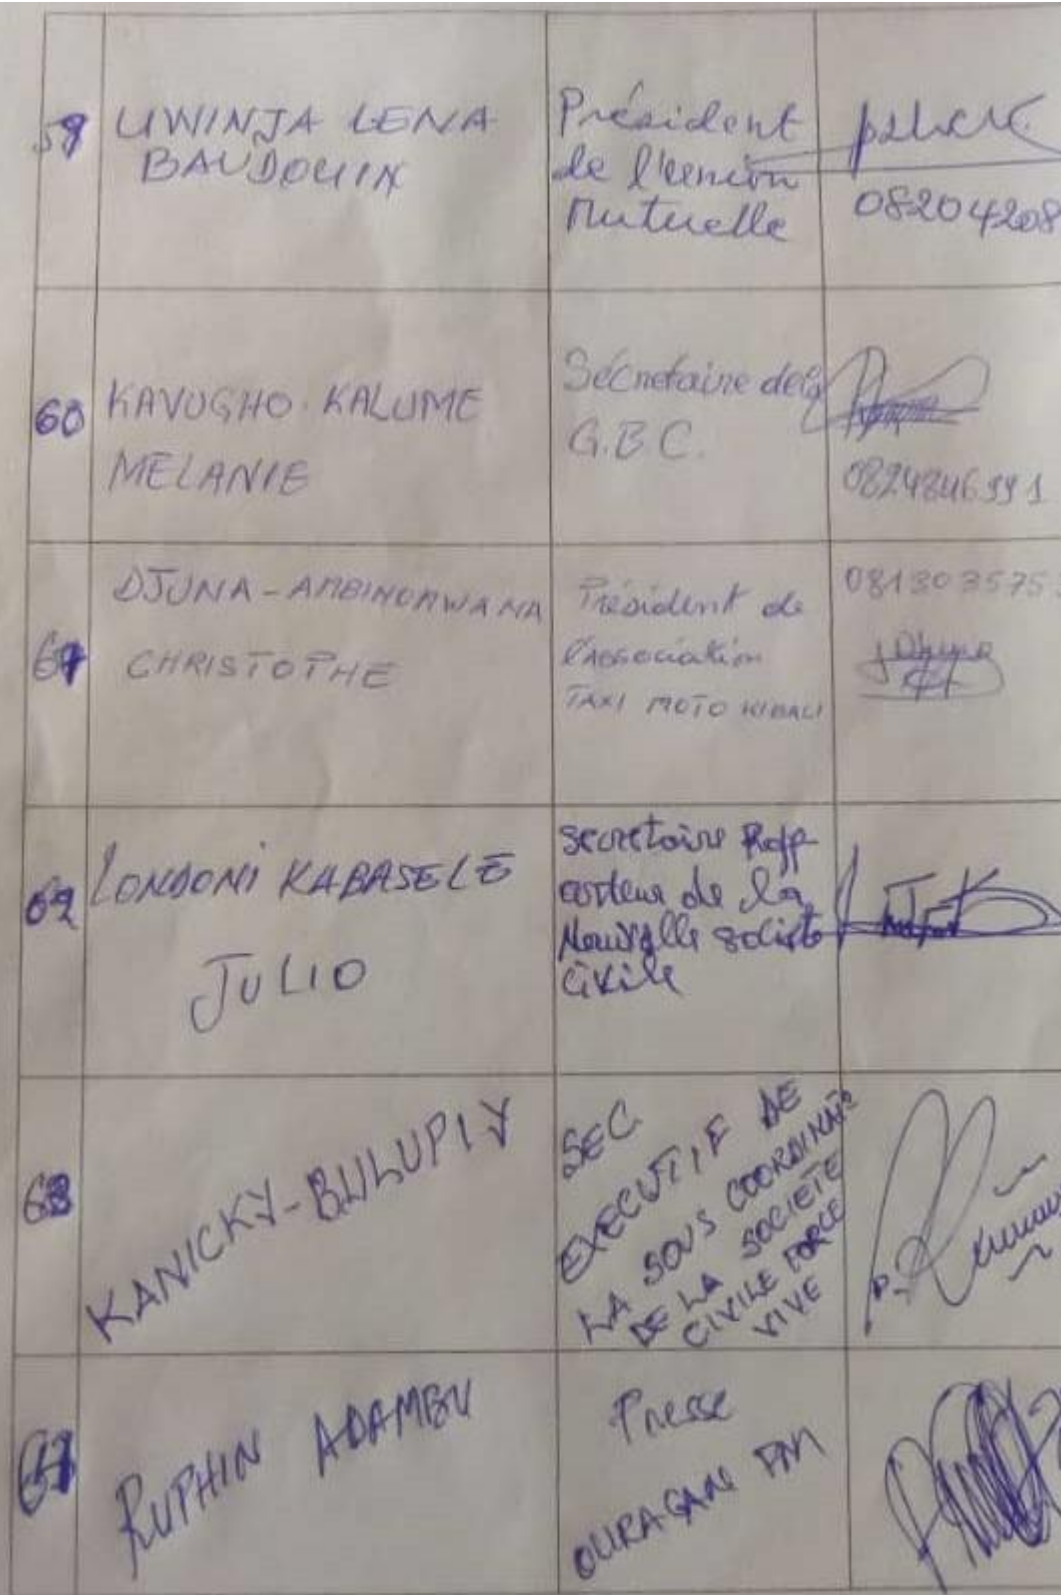 59
UWINJA LENA
BAUDOUIN
Président
de l'union
Mutuelle
08204208
60
KAVUGHO. KALUME
MELANIE
Sécretaire de la
G.B.C.
0824846991
61
DJUNA -
CHRISTOPHE
Président de
l'Association
TAXI MOTO KIBALI
081303575
62
LONDONI KABASELE
JULIO
Secretaire Rapp
orteur de la
Nouvelle societe
Civile
63
KANICKY-BULUPIY
SEC
EXECUTIF DE
LA SOUS COORDINAT
DE LA SOCIETE
CIVILE FORCE
VIVE
64
RUPHIN ADAMBU
Presse
OURAGANE FM